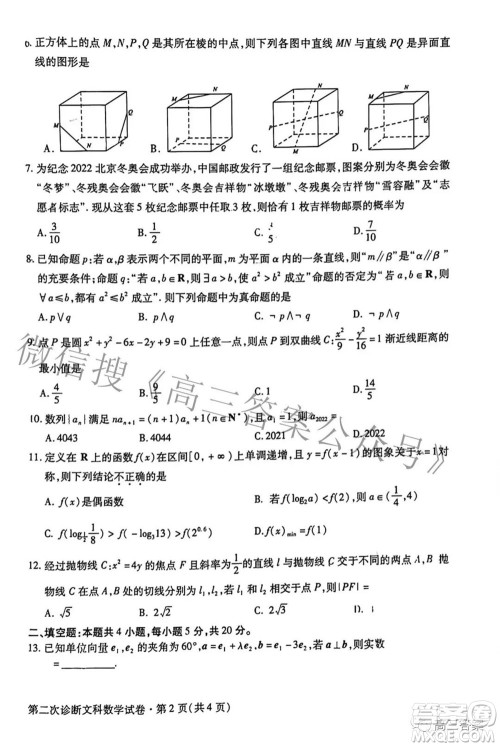 正方体上的点 M,N,P,Q 是其所在棱的中点,则下列各图中直线 MN 与直线 PQ 是异面直
线的图形是
M N P Q
M N P Q
M N P Q
M N P Q
A. B. C. D.
7. 为纪念 2022 北京冬奥会成功举办,中国邮政发行了一组纪念邮票,图案分别为冬奥会会徽
“冬梦”、冬残奥会会徽“飞跃”、冬奥会吉祥物“冰墩墩”、冬残奥会吉祥物“雪容融”及“志
愿者标志”. 现从这套 5 枚纪念邮票中任取 3 枚,则恰有 1 枚吉祥物邮票的概率为
A. 3/10 B. 1/2 C. 3/5 D. 7/10
8. 已知命题 p:若 α,β 表示两个不同的平面,m 为平面 α 内的一条直线,则“m∥β”是“α∥β”
的充要条件;命题 q:“若 a,b∈R,则 ∃a>b,使 a²>b² 成立”的命题的否定为“若 a,b∈R,则
∀a≤b,使 a²≤b² 成立”. 则下列命题为真命题的是
A. p∨q B. p∧q C. ¬p∨q D. ¬p∧¬q
9. 点 P 是圆 x²+y²-6x-2y+9=0 上一动点,则点 P 到双曲线 C: x²/9-y²/16=1 渐近线距离的
最小值是
A. 4/5 B. 9/5 C. 1 D. 14/5
10. 数列{aₙ}满足 naₙ₊₁=(n+1)aₙ+1(n∈N*),且 a₁=1,则 a₂₀₂₂=
A. 4043 B. 4044 C. 2021 D. 2022
11. 定义在 R 上的函数 f(x)在区间[0,+∞)上单调递增,且 f(x+1)的图象关于 x=-1 对
称,则下列结论不正确的是
A. f(x)是偶函数 B. 若 f(1)<f(log₂a),则
C. f(log₁/₂ 1/8)>f(-log₃ D. f(x)min=f(0)
12. 经过抛物线 C:x²=4y 的焦点 F 且斜率为 1/2 的直线 l 与抛物线 C 交于不同的两点 A,B,抛
物线 C 在点 A,B 处的切线分别为 l₁,l₂,若 l₁ 和 l₂ 相交于点 P,则|PF|=
A. 2√5 B. √5 C. √3 D. 2√3
二、填空题:本题共 4 小题,每小题 5 分,共 20 分。
13. 已知单位向量 e₁,e₂ 的夹角为 60°,
=________.
第二次诊断文科数学试卷·第 2 页(共 4 页)
微信搜《高三答案公众号》
高三答案